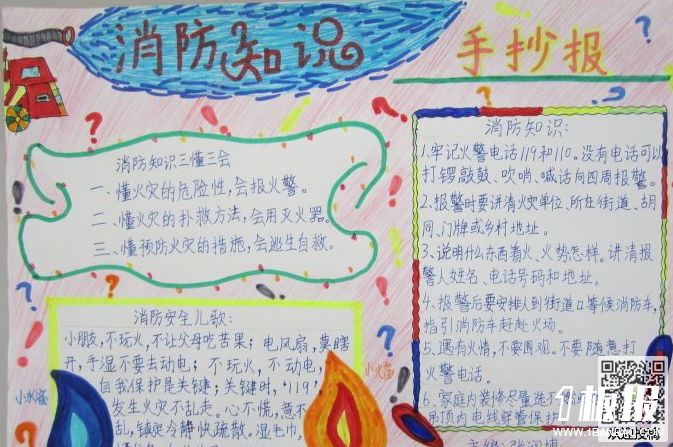 消防知识
手抄报
消防知识三懂三会
一、懂火灾的危险性,会报火警。
二、懂火灾的扑救方法,会用灭火器。
三、懂预防火灾的措施,会逃生自救。
消防安全儿歌:
小朋友,不玩火,不让父母吃苦果;电风扇,莫瞎
开,手湿不要去动电;不玩火,不动电,
自我保护是关键;关键时,'119',
发生火灾不乱走。心不慌,意不
乱,镇定冷静快疏散。湿毛巾,
小水滴
小火苗
消防知识:
1、牢记火警电话119和110。没有电话可以
打锣敲鼓、吹哨、喊话向四周报警。
2、报警时要讲清火灾单位、所在街道、胡
同、门牌或乡村地址。
3、说明什么东西着火、火势怎样。讲清报
警人姓名、电话号码和地址。
4、报警后要安排人到街道口等候消防车,
指引消防车赶赴火场。
5、遇有火情,不要围观。不要随意打
火警电话。
6、家庭内装修尽量选
吊顶内电线穿管保护
1板报